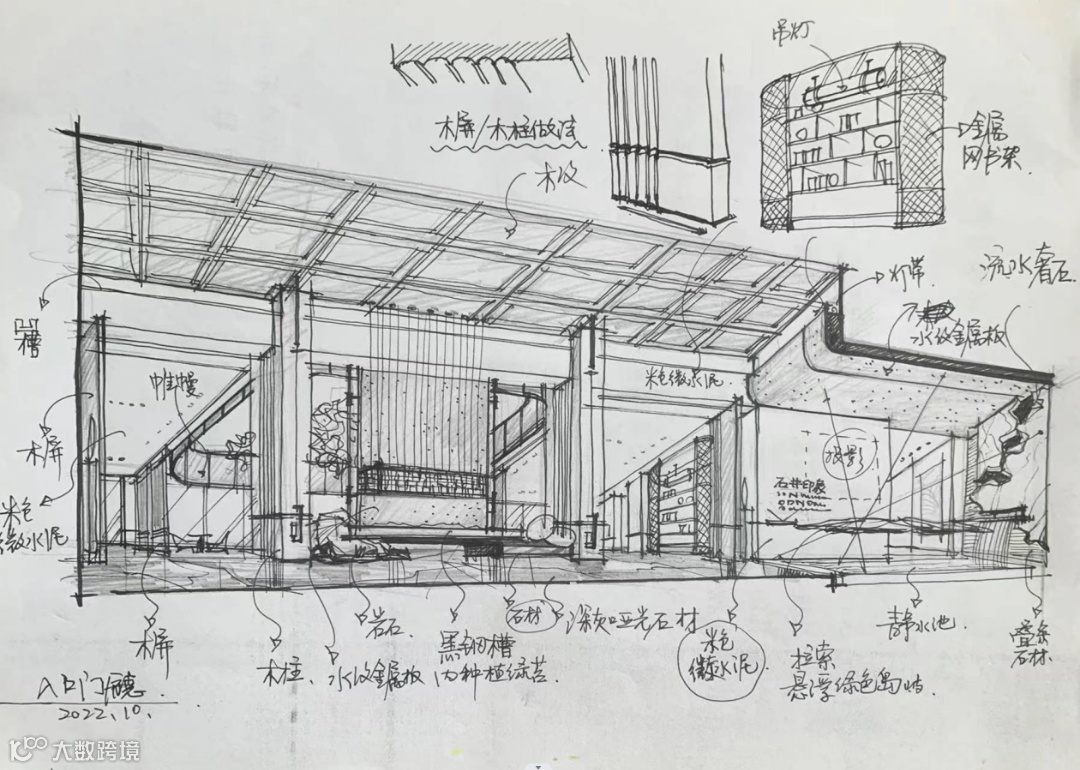 吊灯
木屏/木柱做法
金属
网书架
木纹
灯带
流水奢石
水纹金属板
凹
槽
帷幔
米色微水泥
木屏
投影
石井印象
米色
微水泥
木屏
木柱
水纹金属板
岩石
黑钢槽
内种植绿苔
石材
深灰哑光石材
米色
微水泥
拉索
悬浮绿色岛屿
静水池
叠条
石材
入口门厅
2022.10.
大数跨境